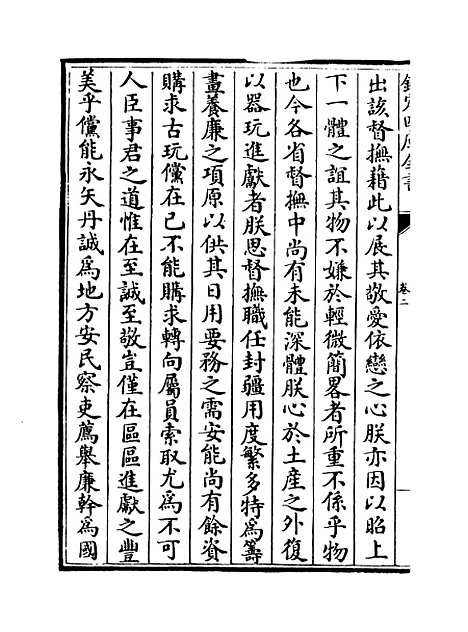 欽定四庫全書
卷二
出該督撫藉此以展其敬愛依戀之心朕亦因以昭上
下一體之誼其物不嫌於輕微簡畧者所重不係乎物
也今各省督撫中尚有未能深體朕心於土産之外復
以器玩進獻者朕思督撫職任封疆用度繁多特為籌
畫養廉之項原以供其日用要務之需安能尚有餘資
購求古玩儻在已不能購求轉向屬員索取尤為不可
人臣事君之道惟在至誠至敬豈僅在區區進獻之豐
美乎儻能永矢丹誠為地方安民察吏薦舉廉幹為國